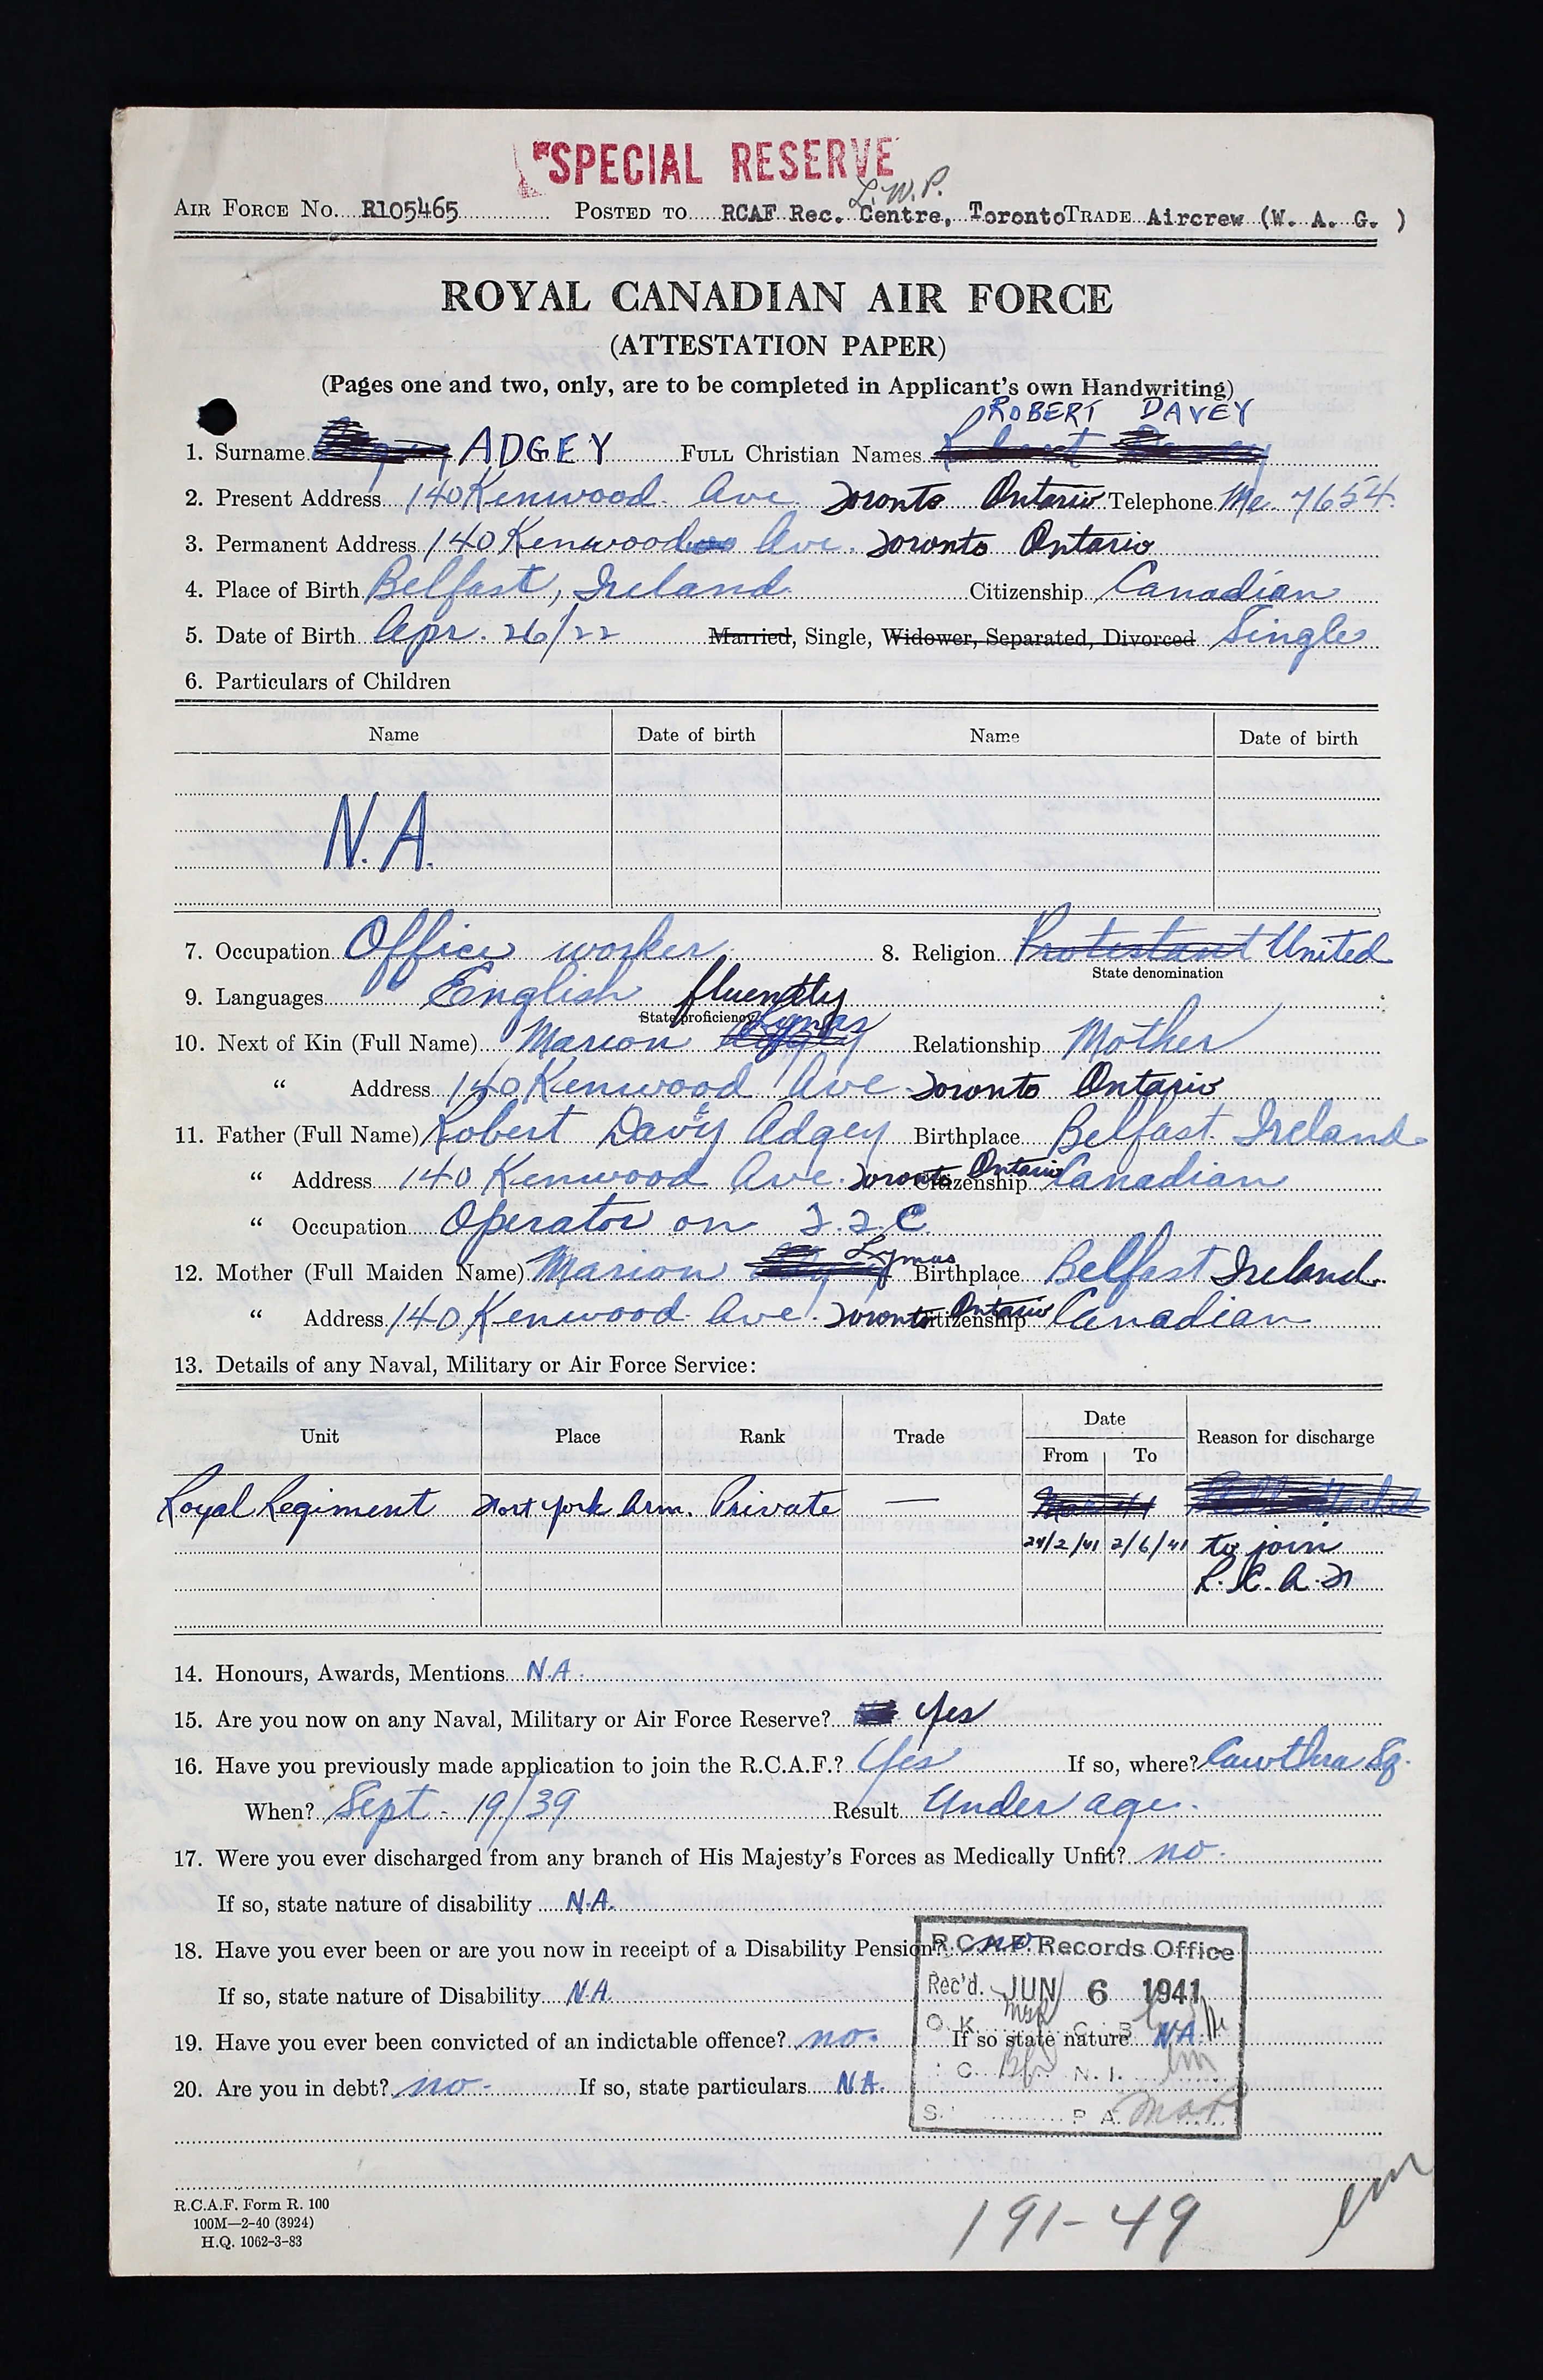 SPECIAL RESERVE
L.W.P.
AIR FORCE No. R105465 POSTED TO RCAF Rec. Centre, Toronto TRADE Aircrew (W. A. G. )
ROYAL CANADIAN AIR FORCE
(ATTESTATION PAPER)
(Pages one and two, only, are to be completed in Applicant's own Handwriting)
ROBERT DAVEY
1. Surname ADGEY FULL Christian Names
2. Present Address 140 Kenwood Ave Toronto Ontario Telephone Me. 7654.
3. Permanent Address 140 Kenwood Ave. Toronto Ontario
4. Place of Birth Belfast, Ireland Citizenship Canadian
5. Date of Birth Apr. 26/22 Married, Single, Widower, Separated, Divorced Single
6. Particulars of Children
Name Date of birth Name Date of birth
N.A.
7. Occupation Office worker 8. Religion Protestant United
State denomination
9. Languages English fluently
State proficiency
Lymas
10. Next of Kin (Full Name) Marion Relationship Mother
" Address 140 Kenwood Ave. Toronto Ontario
11. Father (Full Name) Robert Davey Adgey Birthplace Belfast Ireland
" Address 140 Kenwood Ave. Toronto Ontario Citizenship Canadian
" Occupation Operator on T.T.C.
12. Mother (Full Maiden Name) Marion Lymas Birthplace Belfast Ireland.
" Address 140 Kenwood Ave. Toronto Ontario Citizenship Canadian
13. Details of any Naval, Military or Air Force Service:
Unit Place Rank Trade Date Reason for discharge
From To
Royal Regiment Fort York Arm. Private —
24/2/41 2/6/41 to join
R.C.A.F
14. Honours, Awards, Mentions N.A.
15. Are you now on any Naval, Military or Air Force Reserve? Yes
16. Have you previously made application to join the R.C.A.F.? Yes If so, where? Cawthra Sq.
When? Sept. 19/39 Result Under age.
17. Were you ever discharged from any branch of His Majesty's Forces as Medically Unfit? no.
If so, state nature of disability N.A.
18. Have you ever been or are you now in receipt of a Disability Pension? no
R.C.A.F. Records Office
If so, state nature of Disability N.A.
Rec'd. JUN 6 1941
19. Have you ever been convicted of an indictable offence? no. If so state nature N.A.
O.K. C.B.
20. Are you in debt? no. If so, state particulars N.A.
C. N.I.
S. P.A.
191-49
R.C.A.F. Form R. 100
100M—2-40 (3924)
H.Q. 1062-3-83